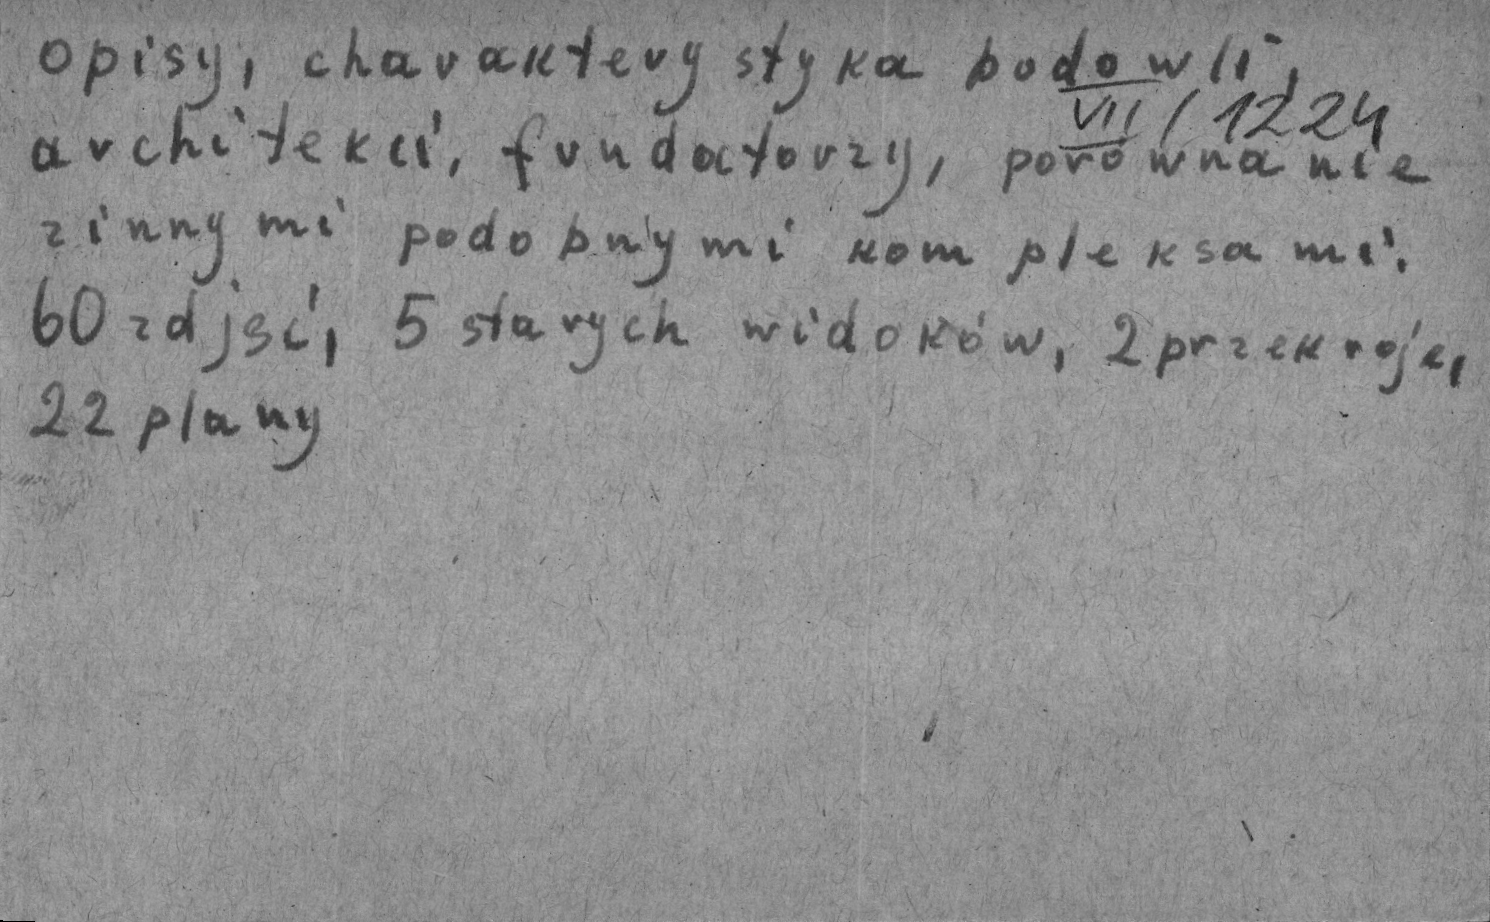 opisy, charakterystyka bodowli,
VII/1224
architekci, fundatorzy, porównanie
z innymi podobnymi kompleksami.
60 zdjęć, 5 starych widoków, 2 przekroje,
22 plany